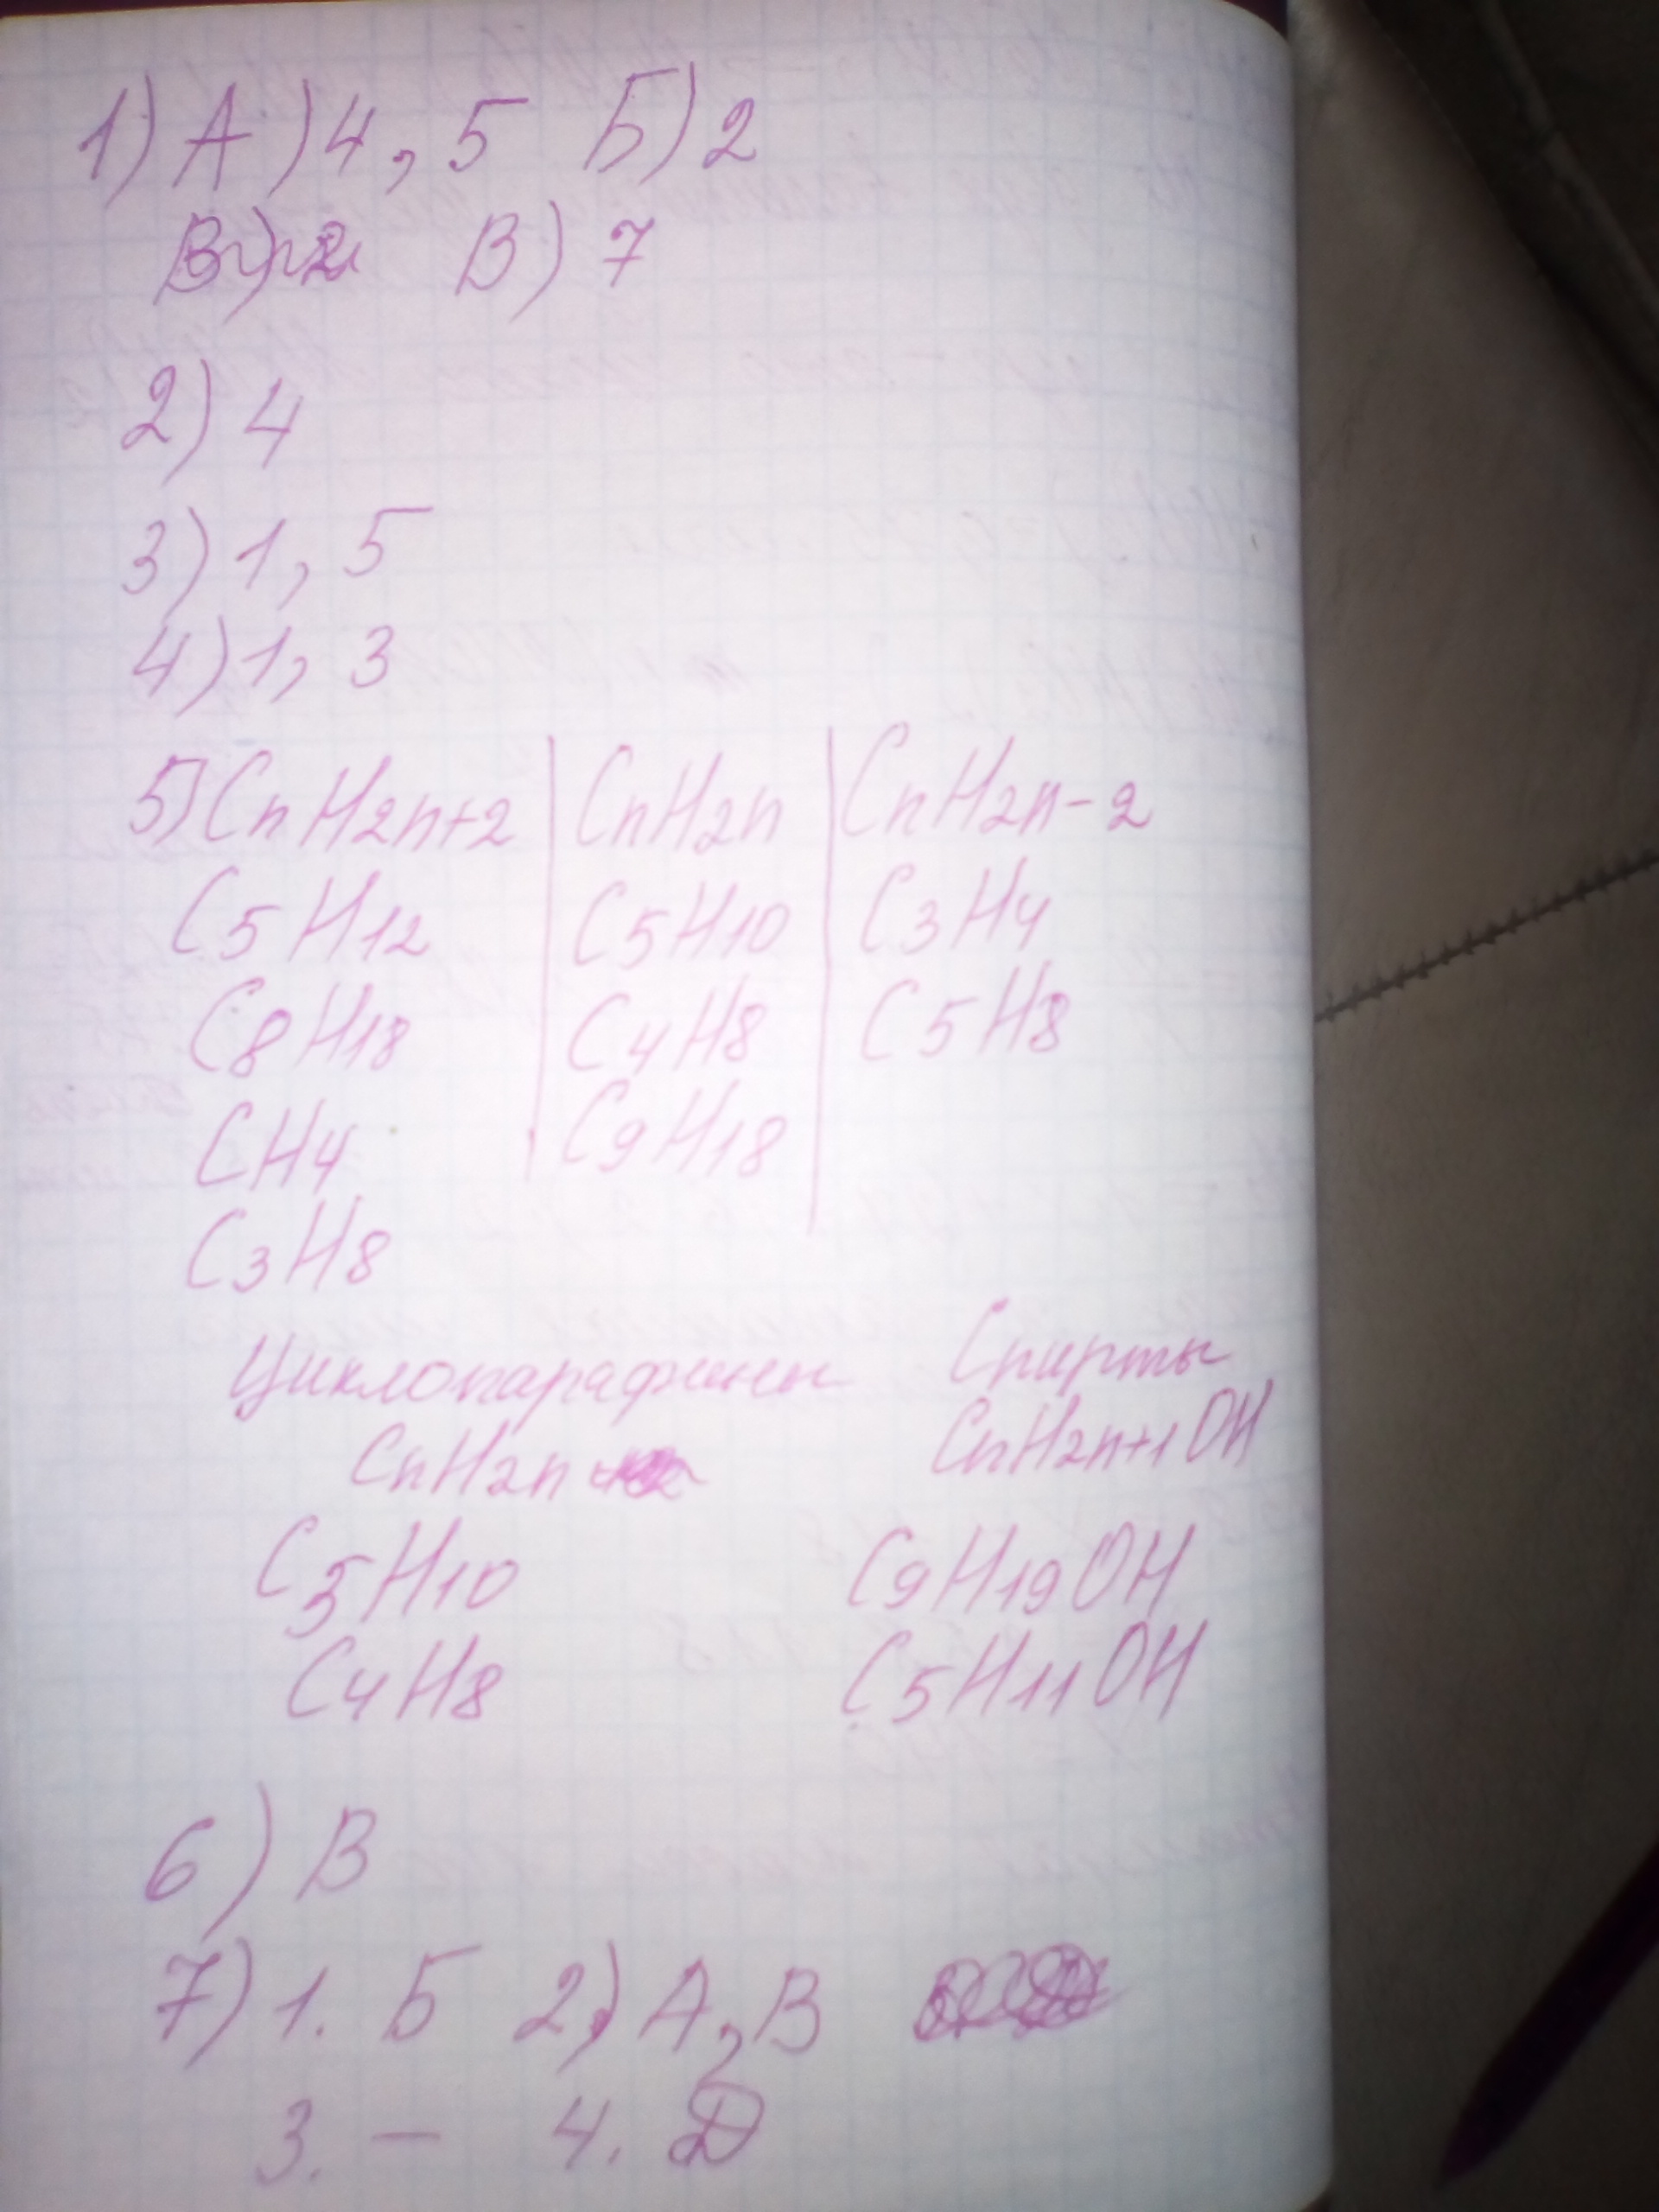 1) А) 4, 5 Б) 2
В) 7
2) 4
3) 1, 5
4) 1, 3
5) CnH2n+2 | CnH2n | CnH2n-2
C5H12 C5H10 C3H4
C8H18 C4H8 C5H8
CH4 C9H18
C3H8
Циклопарафины Спирты
CnH2n CnH2n+1OH
C5H10 C9H19OH
C4H8 C5H11OH
6) В
7) 1. Б 2) А, В
3. — 4. Д